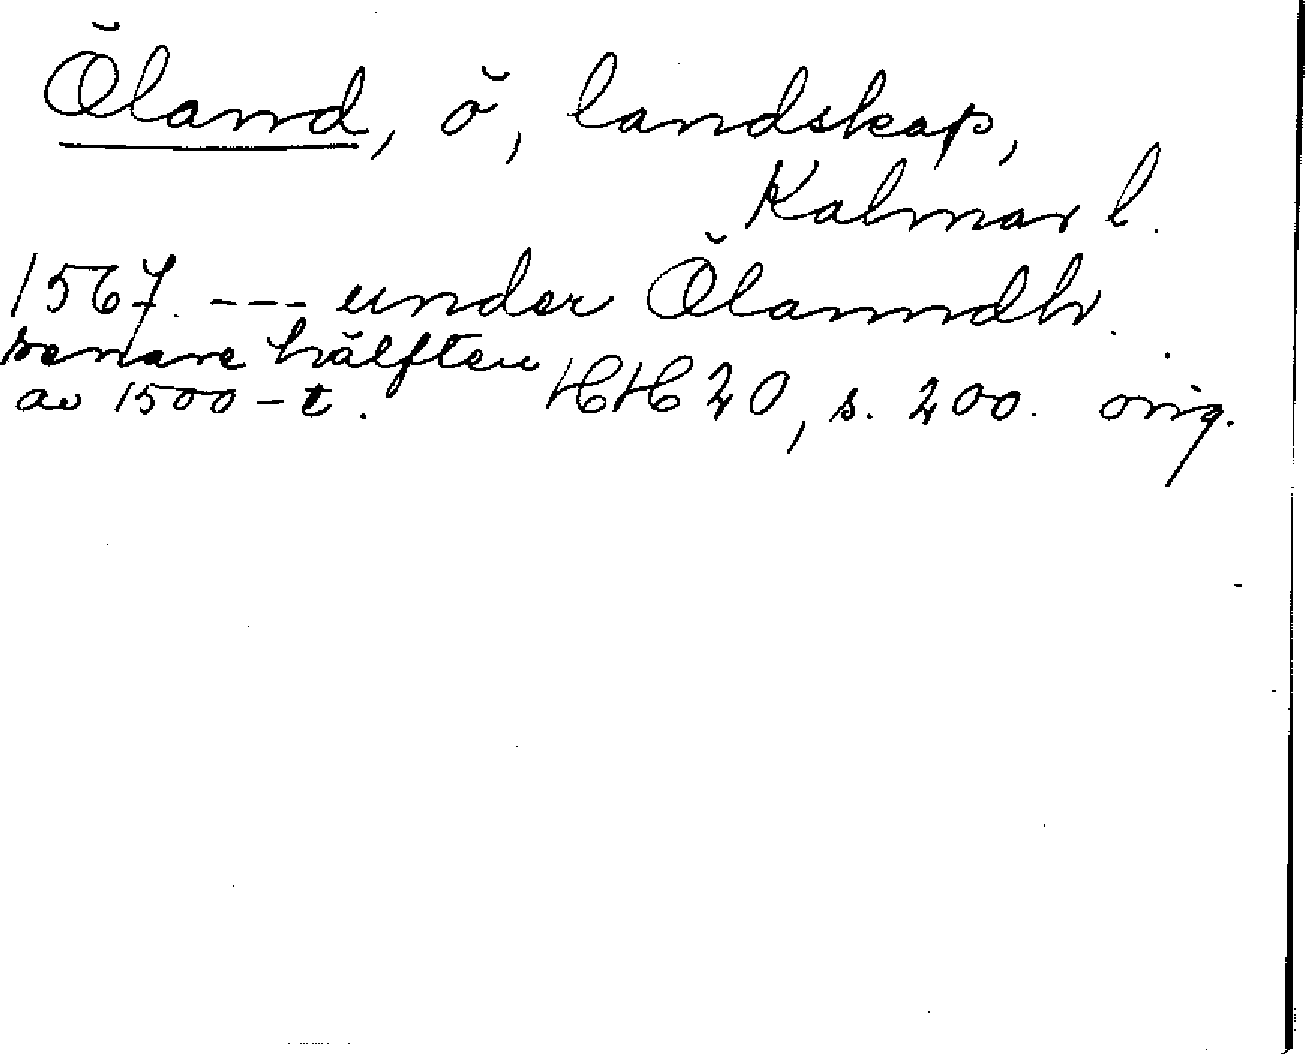 Öland, ö, landskap,
Kalmar l.
1567. --- under Ölanndh.
senare hälften
av 1500-t. HH 20, s. 200. orig.